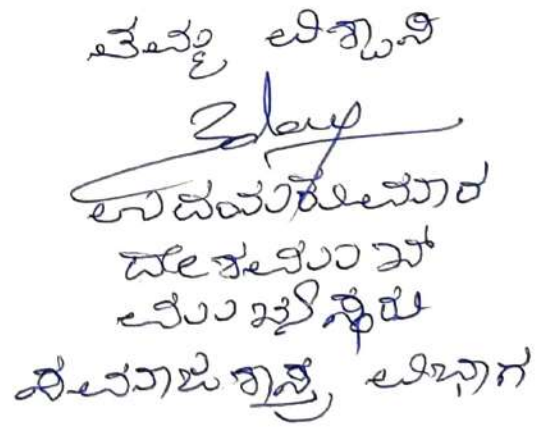 ತಮ್ಮ ವಿಶ್ವಾಸಿ
ಉದಯಕುಮಾರ
ದೇಶಮುಖ್
ಮುಖ್ಯಸ್ಥರು
ಸಮಾಜಶಾಸ್ತ್ರ ವಿಭಾಗ